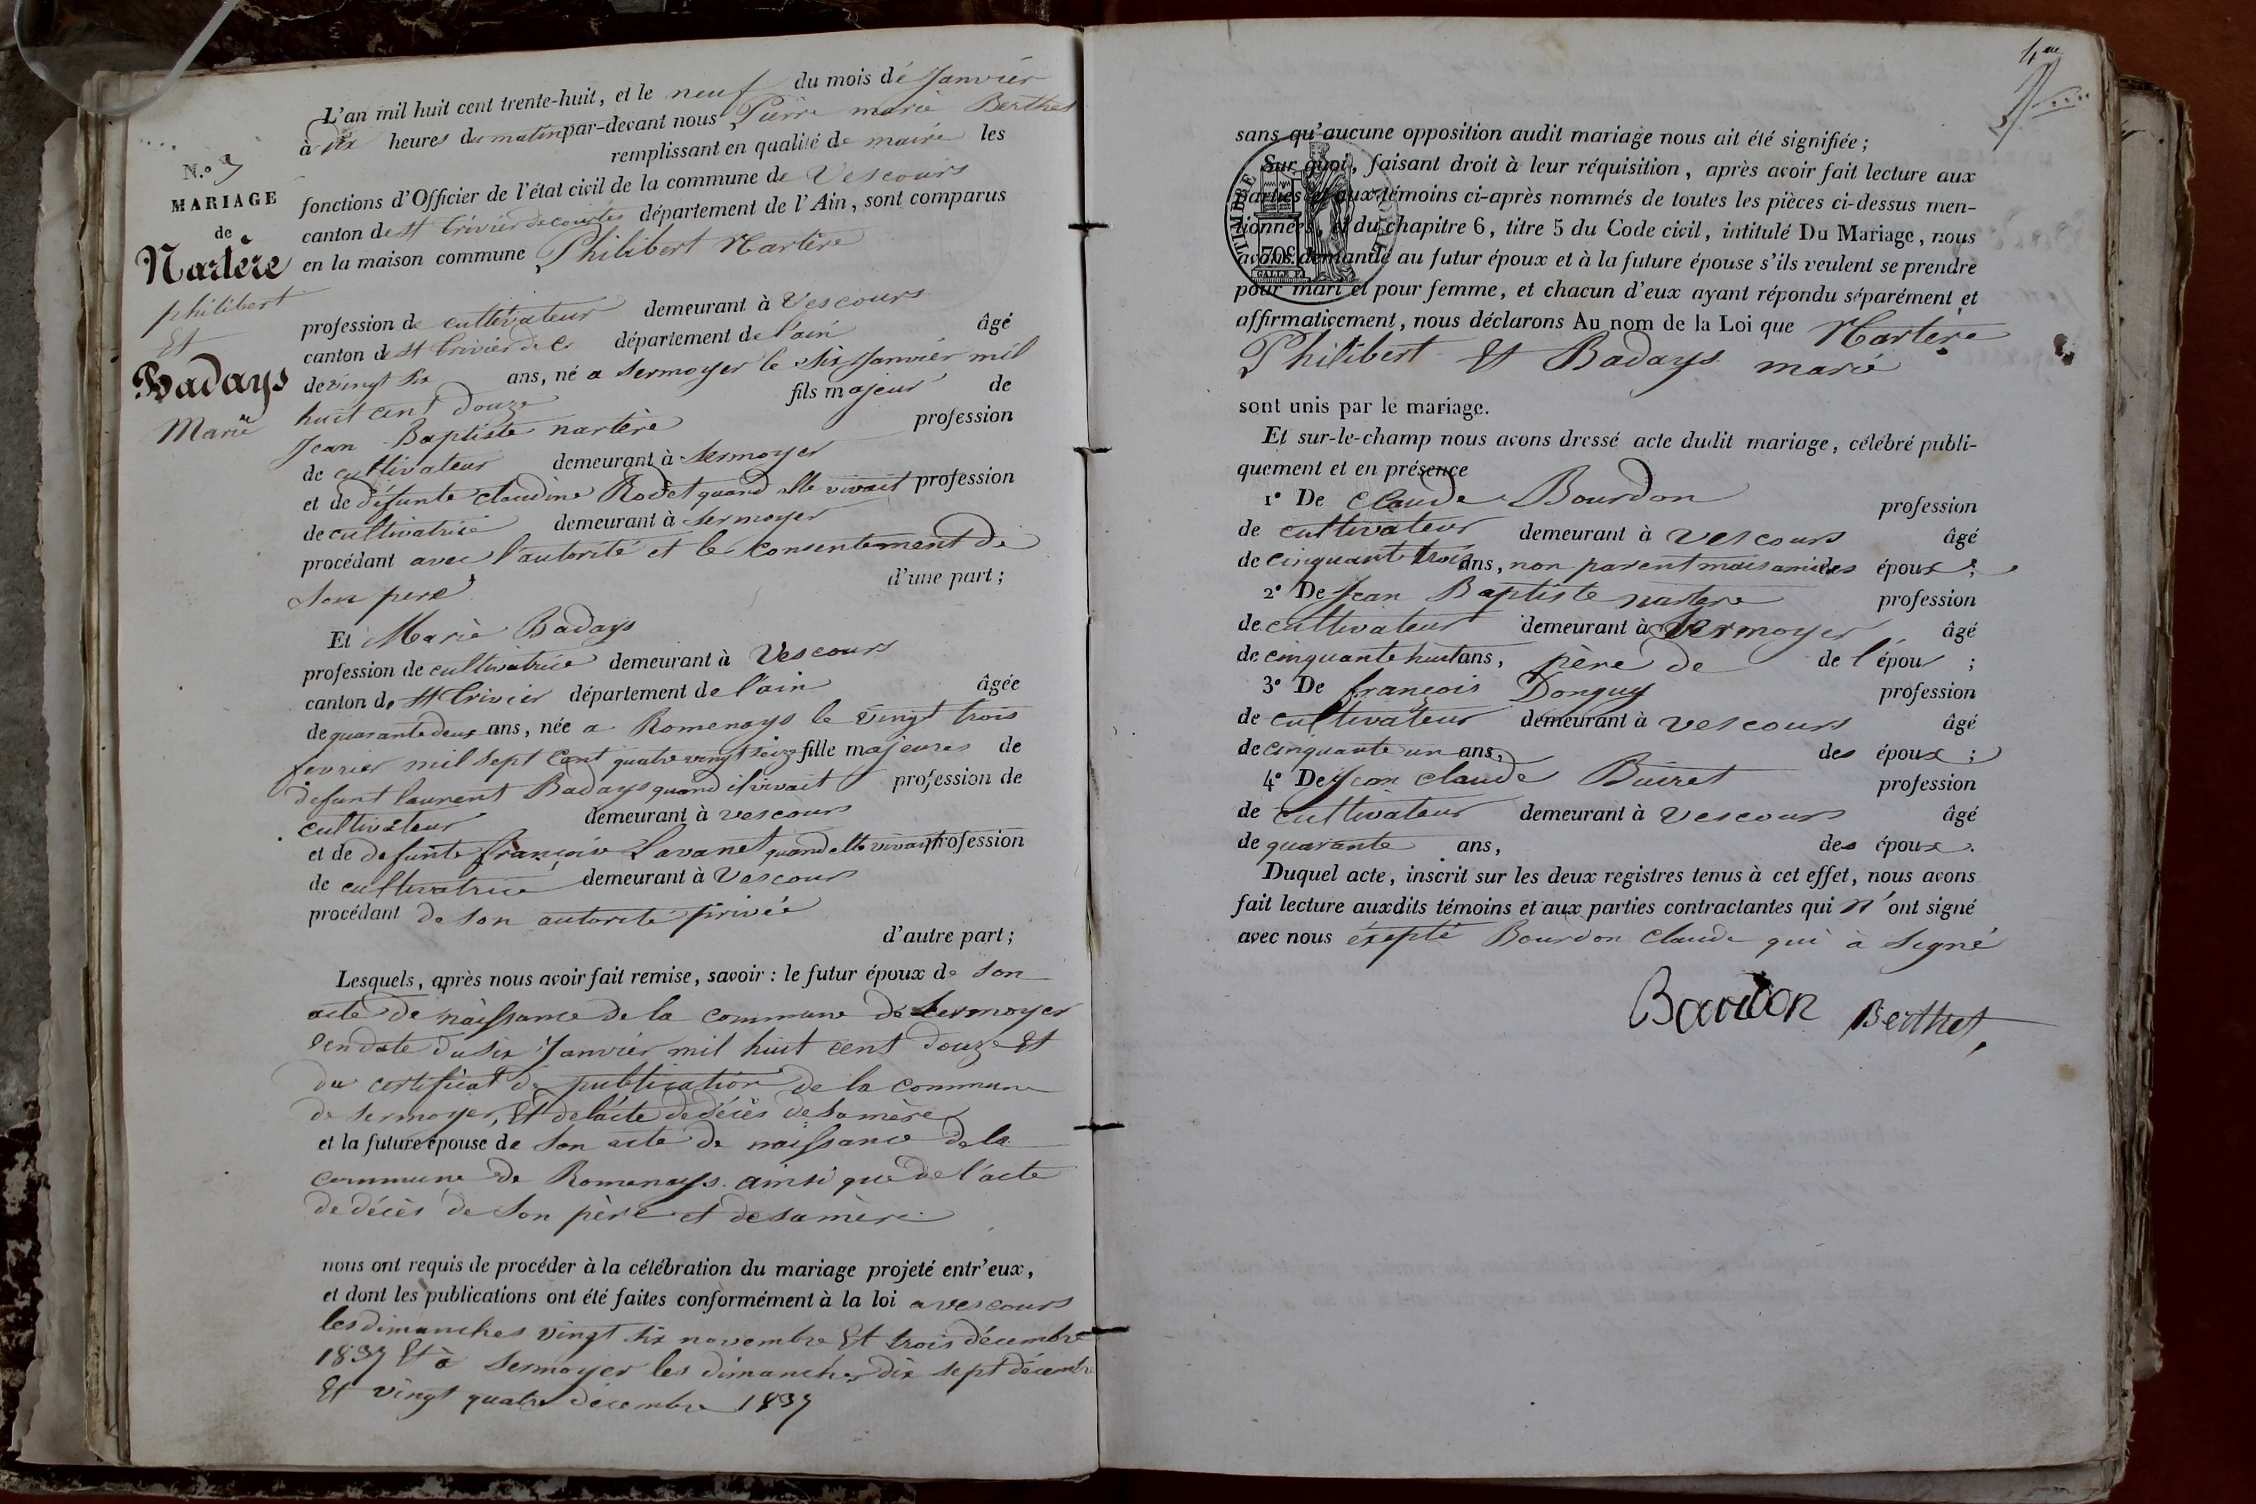 N.o 3
MARIAGE
de
Nartère
philibert
Et
Badays
Marie
L'an mil huit cent trente-huit, et le neuf du mois de Janvier
à dix heures du matin par-devant nous Pierre marie Berthet
remplissant en qualité de maire les
fonctions d'Officier de l'état civil de la commune de Vescours
canton de St Trivier de courtes département de l'Ain, sont comparus
en la maison commune Philibert Nartère
profession de cultivateur demeurant à Vescours
canton de St Trivier de Cs département de l'ain âgé
de vingt six ans, né a Sermoyer le Six Janvier mil
huit cent douze fils majeur de
Jean Baptiste nartère profession
de cultivateur demeurant à Sermoyer
et de défunte claudine Rodet quand elle vivait profession
de cultivatrice demeurant à Sermoyer
procédant avec l'autorité et le consentement de
Son pere d'une part;
Et Marie Badays
profession de cultivatrice demeurant à Vescours
canton de St Trivier département de l'ain âgée
de quarante deux ans, née a Romenays le vingt trois
fevrier mil sept Cent quatre vingt seize fille majeures de
defunt laurent Badays quand il vivait profession de
cultivateur demeurant à vescours
et de defunte françoise Lavanet quand elle vivait profession
de cultivatrice demeurant à Vescours
procédant de son autorité privée
d'autre part;
Lesquels, après nous avoir fait remise, savoir: le futur époux de Son
acte de naissance de la commune de Sermoyer
en date du six Janvier mil huit cent douze Et
du certificat de publication de la commune
de Sermoyer, Et de l'acte de décès de sa mère
et la future épouse de Son acte de naissance de la
commune de Romenays. ainsi que de l'acte
de décès de Son père et de sa mère
nous ont requis de procéder à la célébration du mariage projeté entr'eux,
et dont les publications ont été faites conformément à la loi a vescours
les dimanches vingt six novembre Et trois décembre
1837 Et à Sermoyer les dimanches dix sept décembre
Et vingt quatre décembre 1837
4me
sans qu'aucune opposition audit mariage nous ait été signifiée;
Sur quoi, faisant droit à leur réquisition, après avoir fait lecture aux
parties et aux témoins ci-après nommés de toutes les pièces ci-dessus men-
tionnées, et du chapitre 6, titre 5 du Code civil, intitulé Du Mariage, nous
avons demandé au futur époux et à la future épouse s'ils veulent se prendre
pour mari et pour femme, et chacun d'eux ayant répondu séparément et
affirmativement, nous déclarons Au nom de la Loi que Nartere
Philibert Et Badays marie
TIMBRE ROYAL
70c.
sont unis par le mariage.
Et sur-le-champ nous avons dressé acte dudit mariage, célébré publi-
quement et en présence
1° De Claude Bourdon profession
de cultivateur demeurant à Vescours âgé
de cinquante trois ans, non parent mais ami des époux;
2° De Jean Baptiste nartere profession
de cultivateur demeurant à Sermoyer âgé
de cinquante huit ans, père de de l'époux;
3° De françois Donguy profession
de cultivateur demeurant à vescours âgé
de cinquante un ans, des époux;
4° De Jean claude Buiret profession
de cultivateur demeurant à Vescours âgé
de quarante ans, des époux.
Duquel acte, inscrit sur les deux registres tenus à cet effet, nous avons
fait lecture auxdits témoins et aux parties contractantes qui n'ont signé
avec nous éxepté Bourdon Claude qui à Signé
Bourdon Berthet